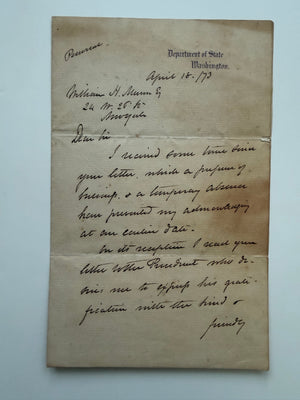 Department of State
Washington.
April 18./73
William H. Munn Eq
24 W. 26 St
New York
Dear Sir
I received some time since
your letter, which a pressure of
business, & a temporary absence
have prevented my acknowledging
at an earlier date.
On its reception I read your
letter to the President who de-
sires me to express his grati-
fication with the kind &
friendly